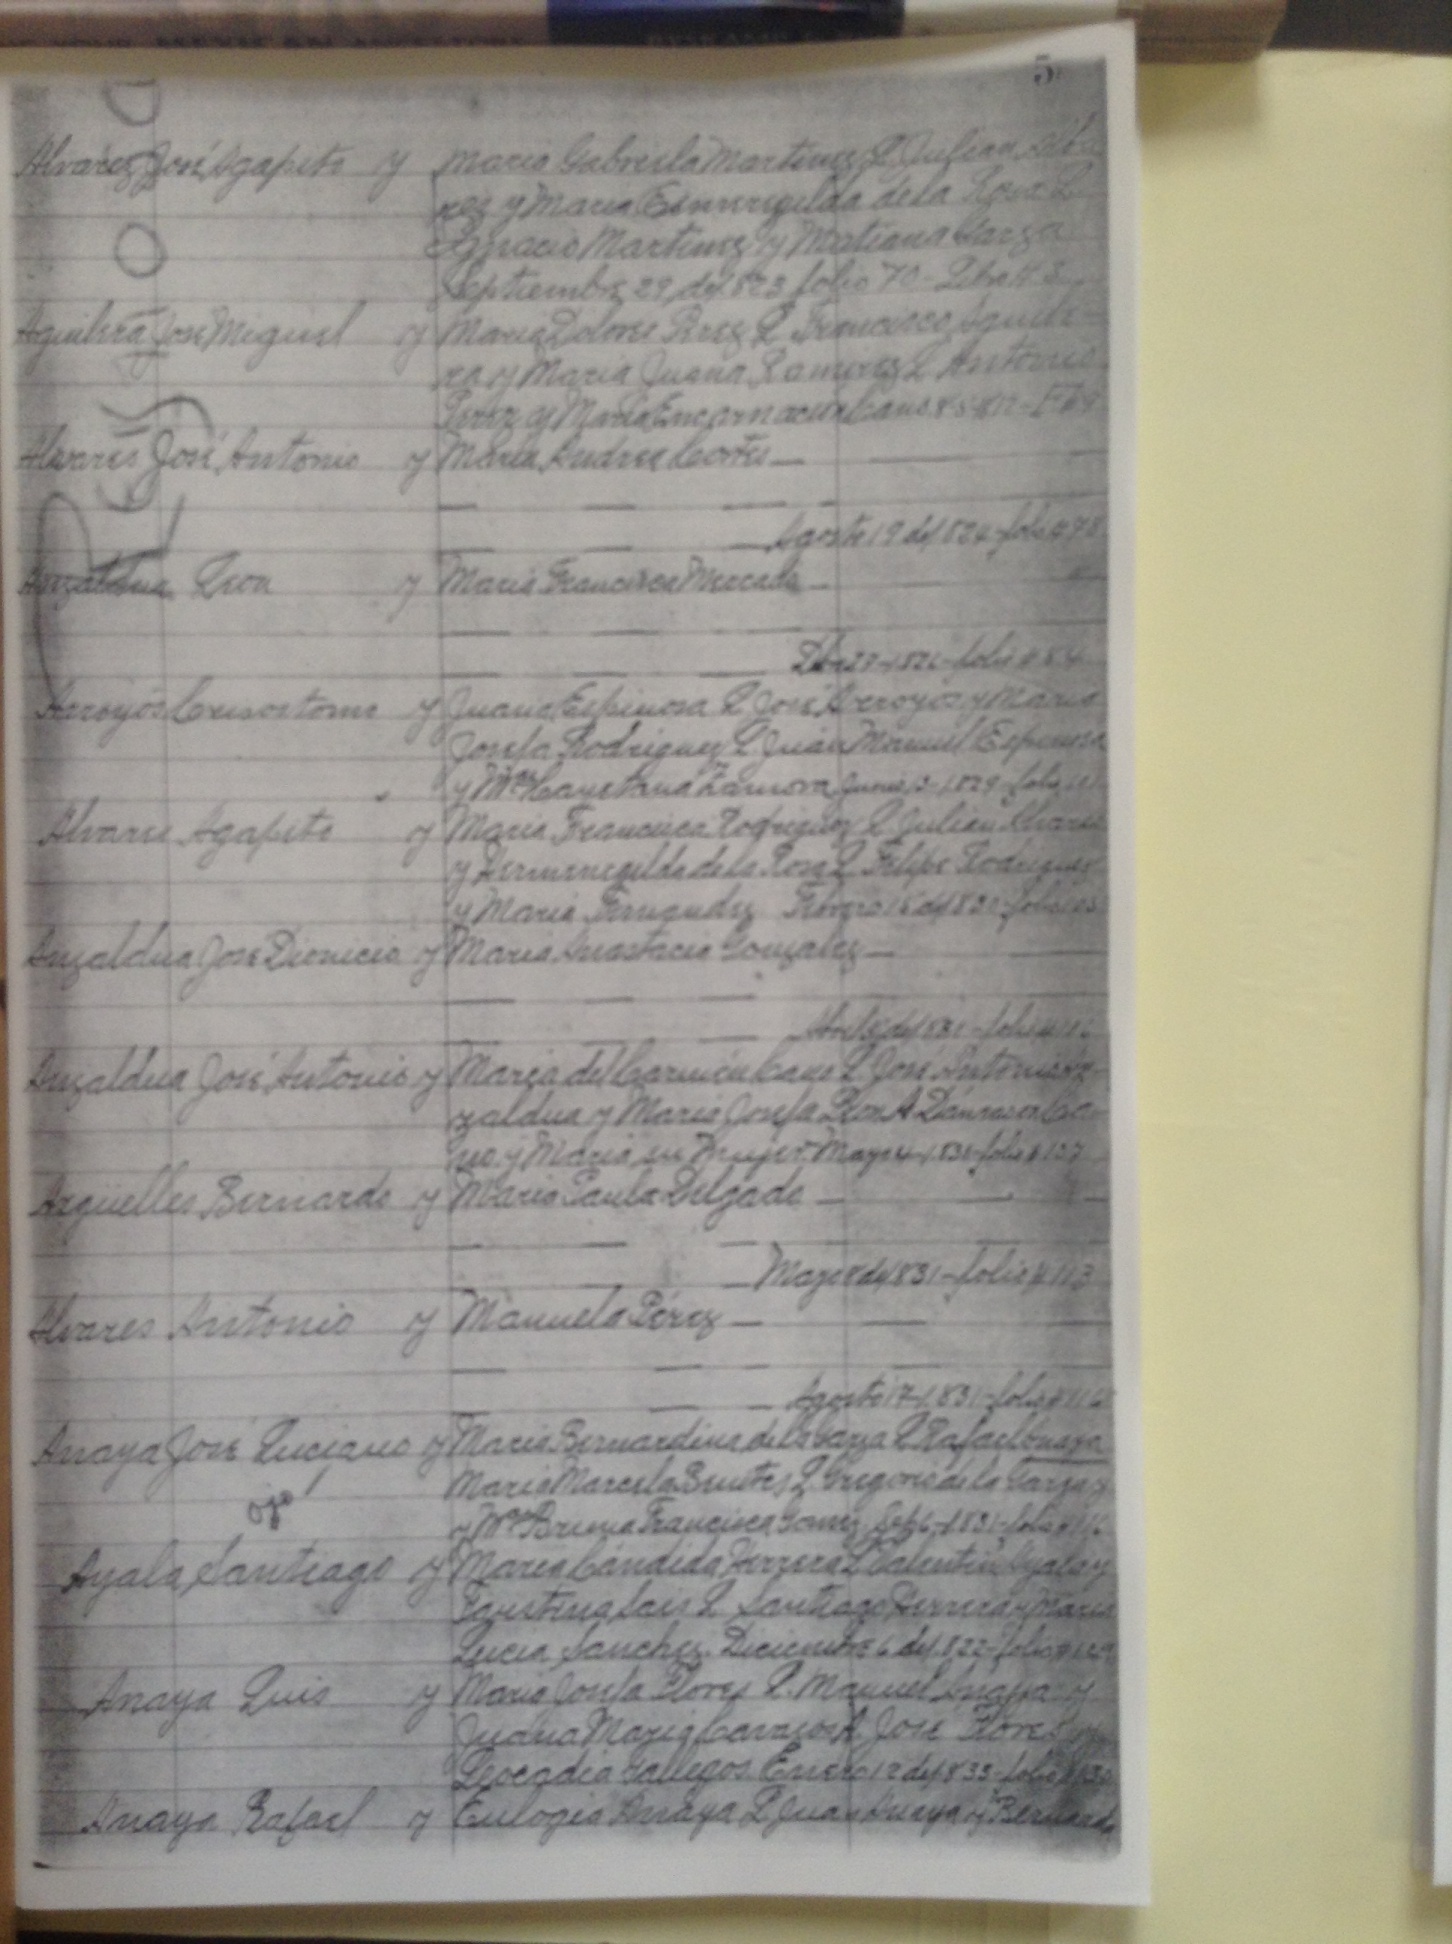 5
Alvarez José Agapito y Maria Gabriela Martinez P. Julian Alva
rez y Maria Esmeregilda de la Rosa P.
Ygnacio Martinez y Matiana Garza
Septiembre 29 de 1823 folio 70-
Aguilera José Miguel y Maria Dolores Perez P. Francisco Aguile-
ra y Maria Juana Ramirez P. Antonio
Perez y Maria Encarnacion Cano
Alvares José Antonio y Maria Andrea Cortes
Agosto 19 de 1824-folio # 78
Anzaldua Leon y Maria Francisca Mercado
27-1826-folio # 84
Arroyos Crisostomo y Juana Espinosa P. José Arroyos y Maria
Josefa Rodriguez P. Juan Manuel Espinosa
y Ma. Cayetana Zamora Junio 3-1829-folio
Alvares Agapito y Maria Francisca Rodriguez P. Julian Alvares
y Hermenegilda de la Rosa P. Felipe Rodriguez
y Maria Fernandez Febrero 15 de 1830-folio
Anzaldua José Dionicio y Maria Anastacia Gonzalez
de 1831-folio #
Anzaldua José Antonio y Maria del Carmen Cano P. José Antonio An-
zaldua y Maria Josefa Leon A. Damason Ca-
no y Maria su Mujer Mayo 4-1831-folio #
Arguelles Bernardo y Maria Paula Delgado
Mayo 8 de 1831-folio # 113
Alvares Antonio y Manuela Pérez
Agosto 17-1831-folio # 116
Anaya José Luciano y Maria Bernardina de la Garza P. Rafael Anaya
Maria Marcela Benites P. Gregorio de la Garza
ojo
y Ma. Bruna Francisca Gomez Sept 6-1831-folio #
Ayala Santiago y Maria Cándida Herrera P. Valentin Ayala y
Faustina Sais P. Santiago Herrera y Maria
Lucia Sanchez. Diciembre 6 de 1822-folio # 129
Anaya Luis y Maria Josefa Flores P. Manuel Anaya y
Juana Maria Carrasco A. José Flores y
Leocadia Gallegos. Enero 12 de 1833-folio # 130
Anaya Rafael y Eulogia Anaya P. Juan Anaya y Bernarda